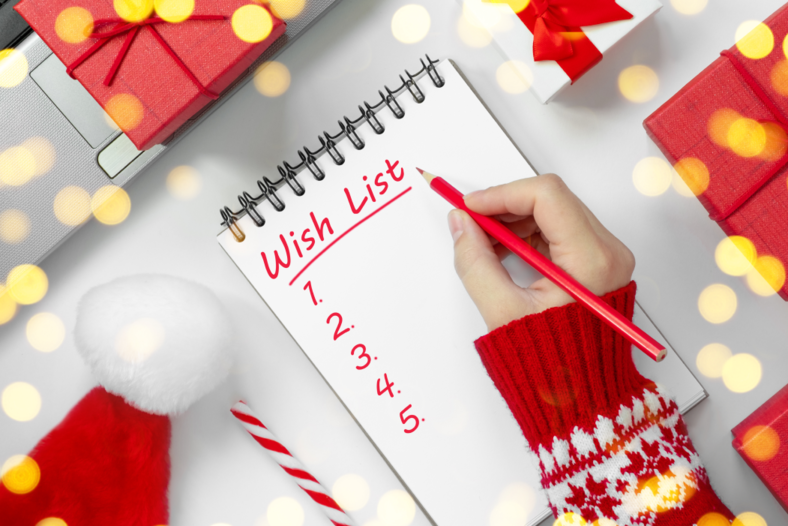 Wish List
1.
2.
3.
4.
5.